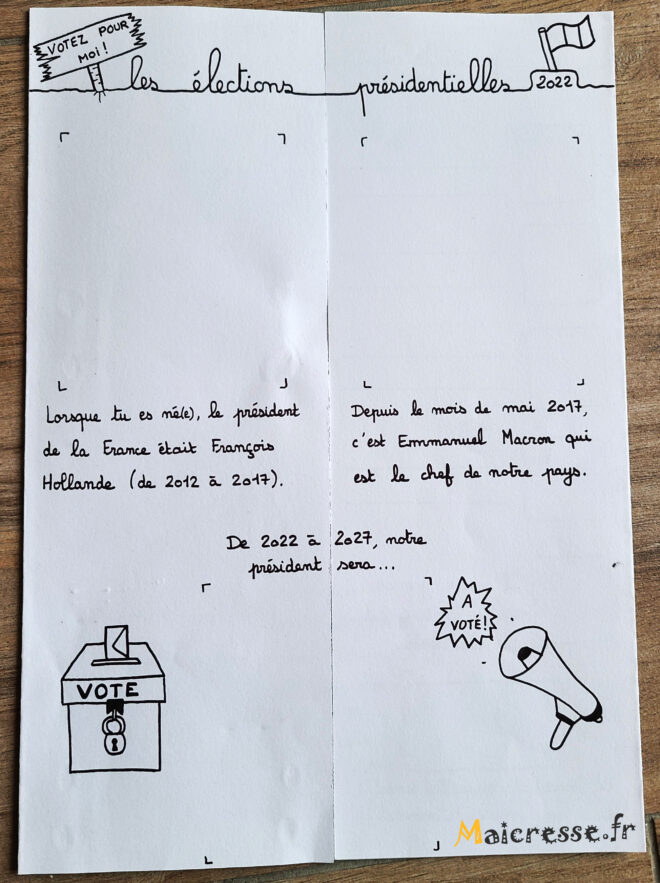 VOTEZ POUR
MOI !
les élections présidentielles 2022
Lorsque tu es né(e), le président
de la France était François
Hollande (de 2012 à 2017).
Depuis le mois de mai 2017,
c'est Emmanuel Macron qui
est le chef de notre pays.
De 2022 à 2027, notre
président sera...
A
VOTÉ!
VOTE
Maicresse.fr